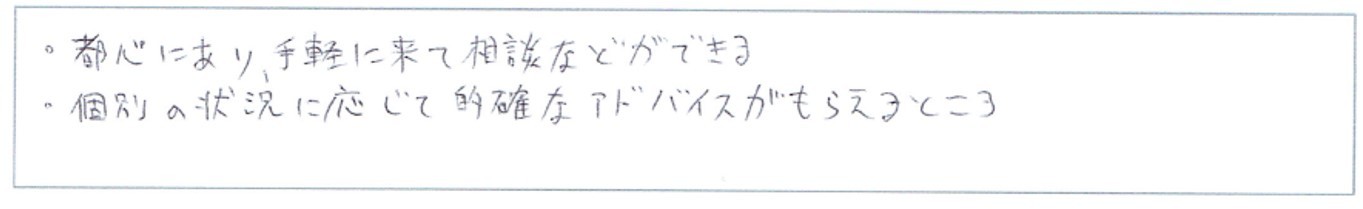 ・都心にあり、手軽に来て相談などができる
・個別の状況に応じて的確なアドバイスがもらえるところ